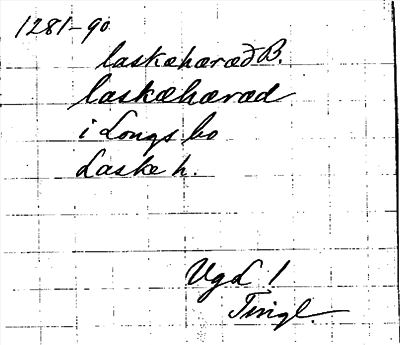 1281-90
laskæhæræð B.
laskæhæræd
i Longs bo
Laske h.
Vgd 1
Tingl.